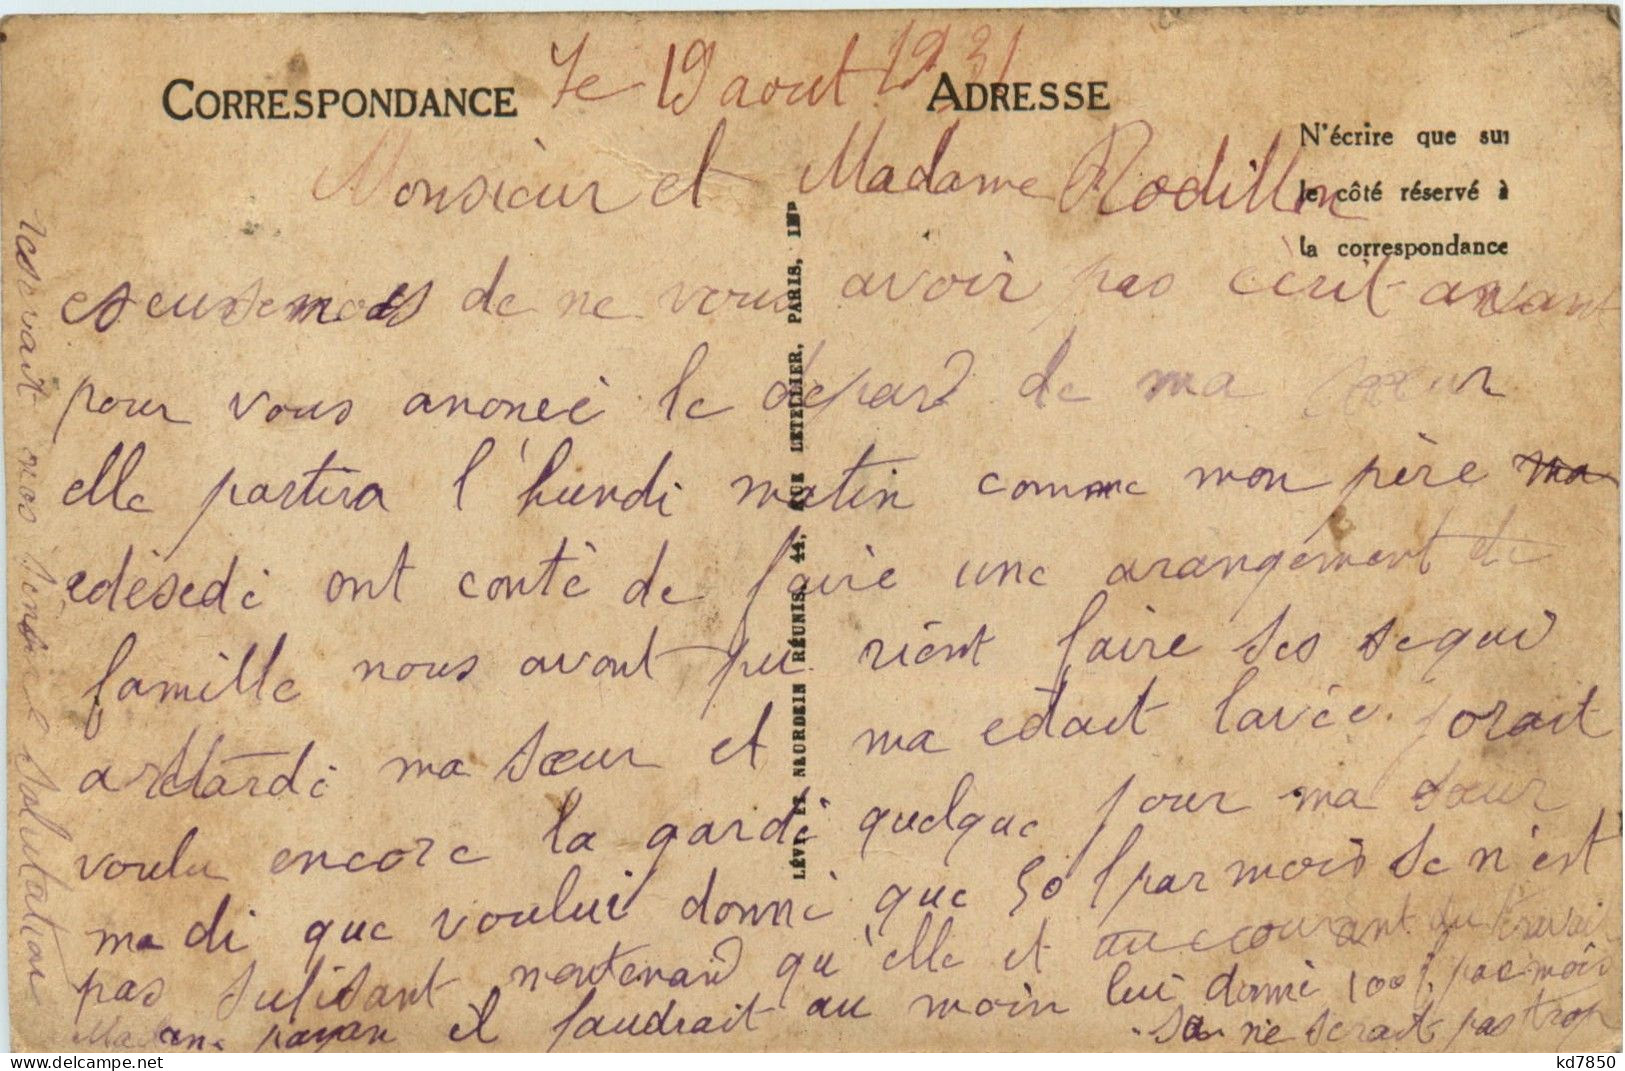 CORRESPONDANCE
le 19 aout 1931
ADRESSE
N'écrire que sur
le côté réservé à
la correspondance
Monsieur et Madame Rodillon
de ne vous avoir pas écrit avant
pour vous anoncé le départ de ma sœur
elle partira l'hundi matin comme mon père ma
edèsedé ont conté de faire une arangement de
famille nous avont pu rient faire ses sequi
artardé ma sœur et ma edait lavée jorait
voulu encore la gardé quelque jour ma sœur
ma di que vouluié donné que 50 f par mois se n'est
pas sufisant mentenand qu'elle et au courant du travail
payan il faudrait au moin lui donné 100 f. par mois
sa ne serait pas trop
resevait mos sincere Salutation
LÉVY ET NEURDEIN RÉUNIS, 44, RUE LETELLIER, PARIS, IMP
kd7850